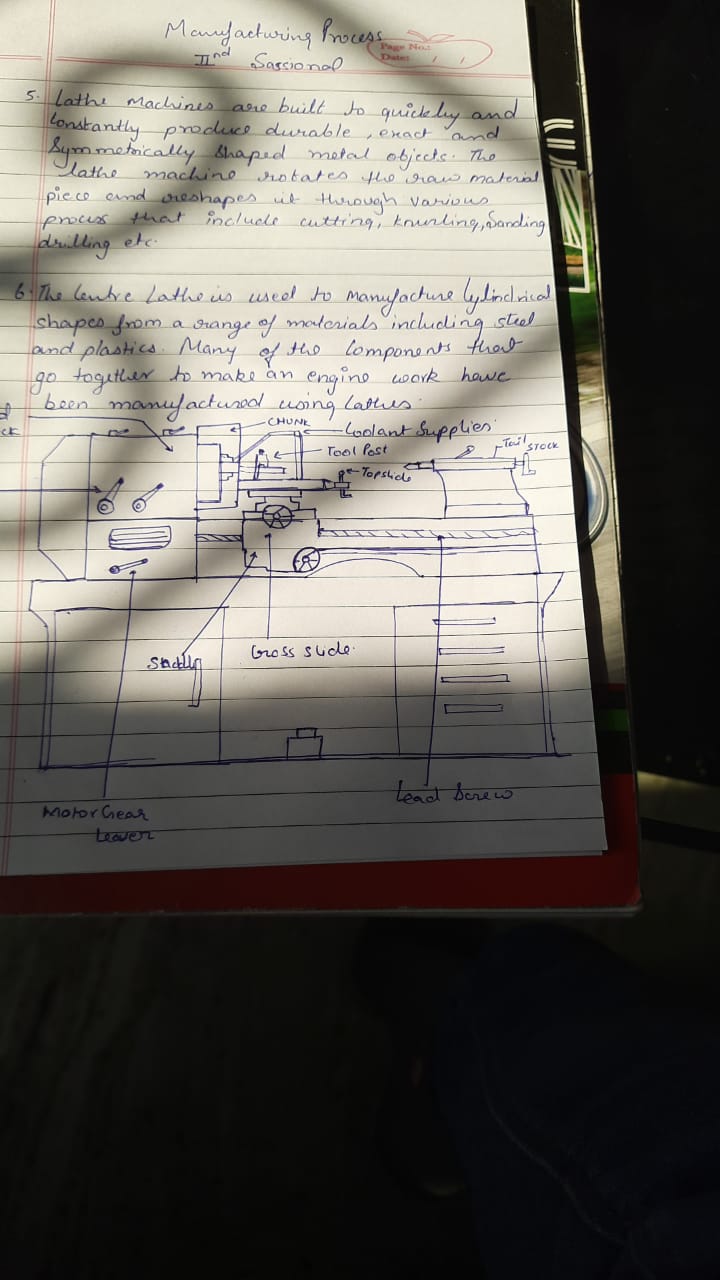 Manufacturing Process
IInd Sassional
Page No.:
Date: / /
5. Lathe Machines are built to quickly and
Constantly produce durable, exact and
Symmetrically Shaped metal objects. The
lathe machine rotates the raw material
piece and reshapes it through various
process that include cutting, knurling, Sanding
drilling etc.
6. The Centre Lathe is used to Manufacture Cylindrical
shapes from a range of materials including steel
and plastics. Many of the Components that
go together to make an engine work have
been manufactured using Lathes.
CHUNK
Coolant Supplies
Tool Post
Tail STOCK
Topslide
Saddle
Cross slide.
Lead Screw
Motor Gear
Leaver